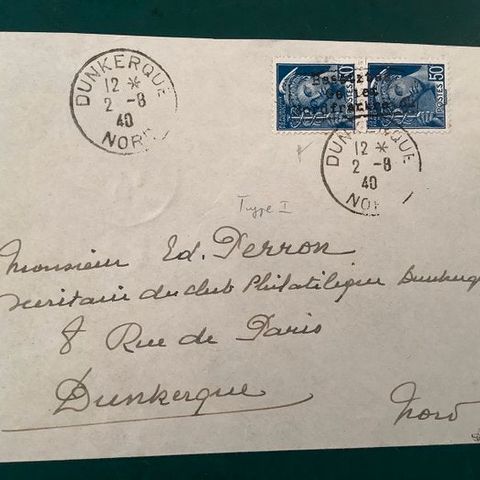 DUNKERQUE
12 *
2 -8
40
NOR
50
50
POSTES
Besetztes
Gebiet
Nordfrankreich
DUNKERQUE
12 *
2 -8
40
NOR
Type I
Monsieur Ed. Perron
Secrétaire du club Philatélique
8 Rue de Paris
Dunkerque
Nord